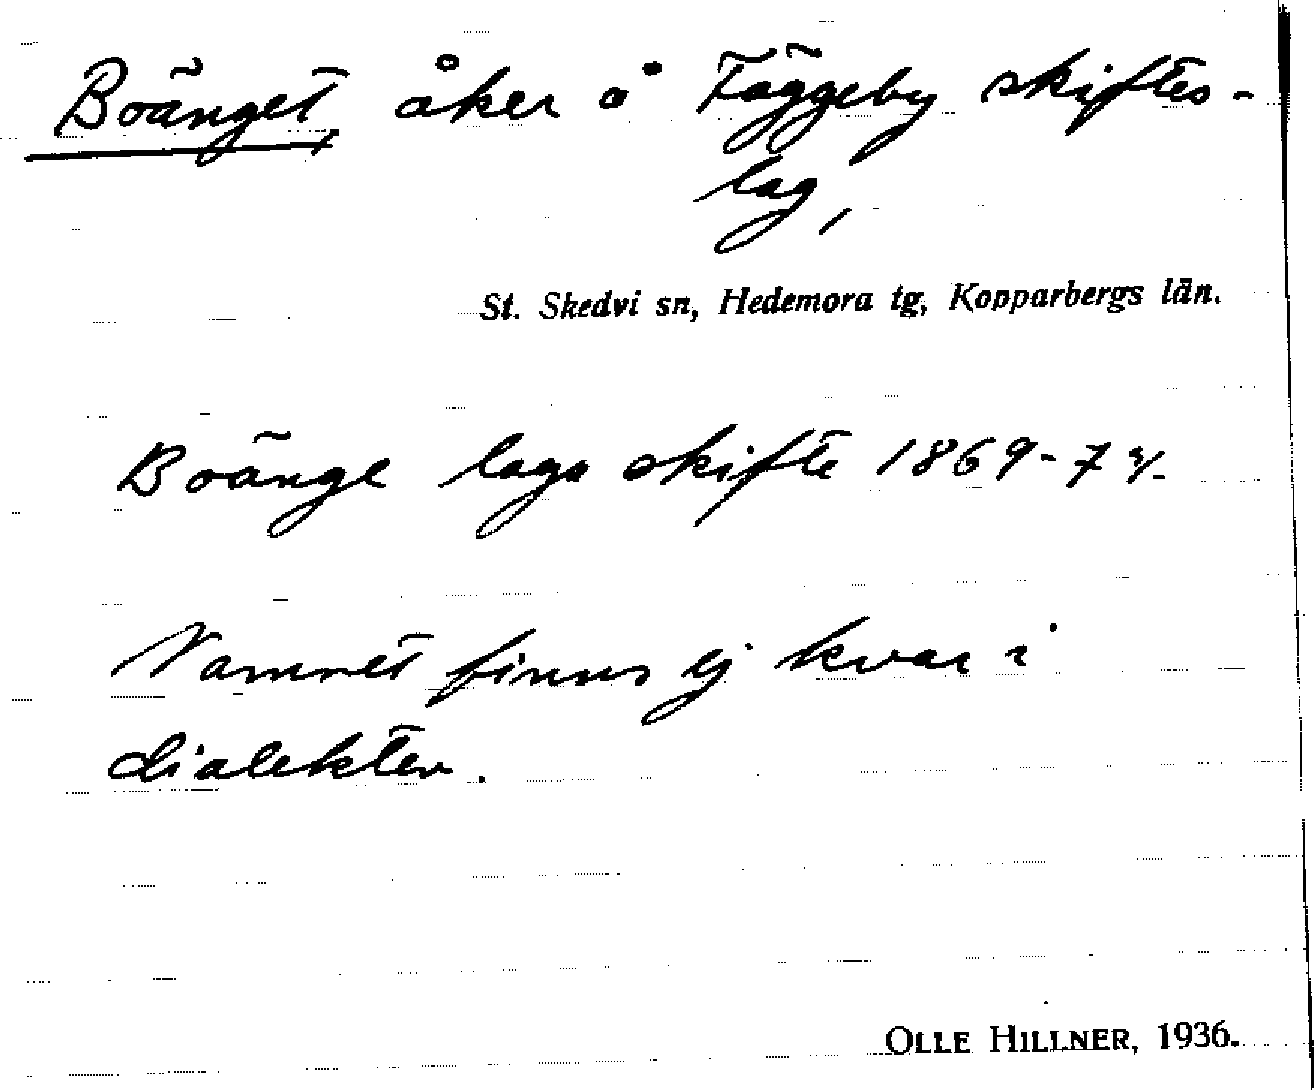 Boänget, åker å Täggeby skiftes-
lag,
St. Skedvi sn, Hedemora tg, Kopparbergs län.
Boänge laga skifte 1869-74.
Namnet finns ej kvar i
dialekten.
OLLE HILLNER, 1936.